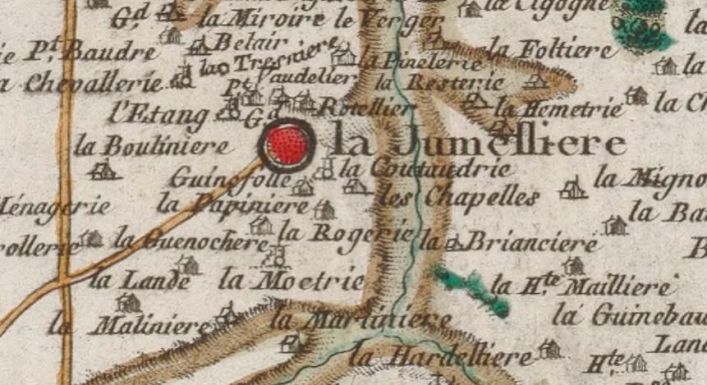 Gd. la Miroire le Verger la Cigogne
Pt. Baudre Belair la Foltiere
la Tresniere la Pinelerie la
a Chevallerie Pt. Vaudelier la Resterie
l'Etang Gd. Rotellier la Hemetrie la Ch
la Bouliniere la Jumelliere
Guinefolle la Coutaudrie
Ménagerie la Papiniere les Chapelles la Migno
rollerie la Guenochere la Rogerie la Brianciere la Ba
la Lande la Moetrie la Hte. Mailliere B
la Maliniere la Martiniere la Guinebau
la Hardelliere Hte. Land